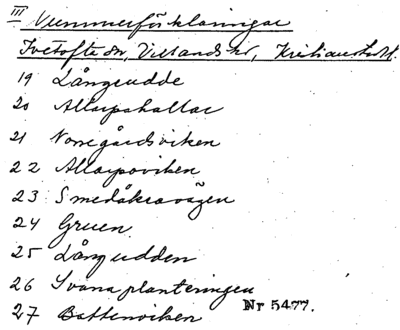 III Nummerförklaringar
Ivetofta sn, Villands hd, Kristianst. l.
19 Långudde
20 Allarpshallar
21 Norregårdsviken
22 Allarpsviken
23 Smedåkravägen
24 Gruen
25 Långudden
26 Svana planteringen
27 Battenviken Nr 5477.